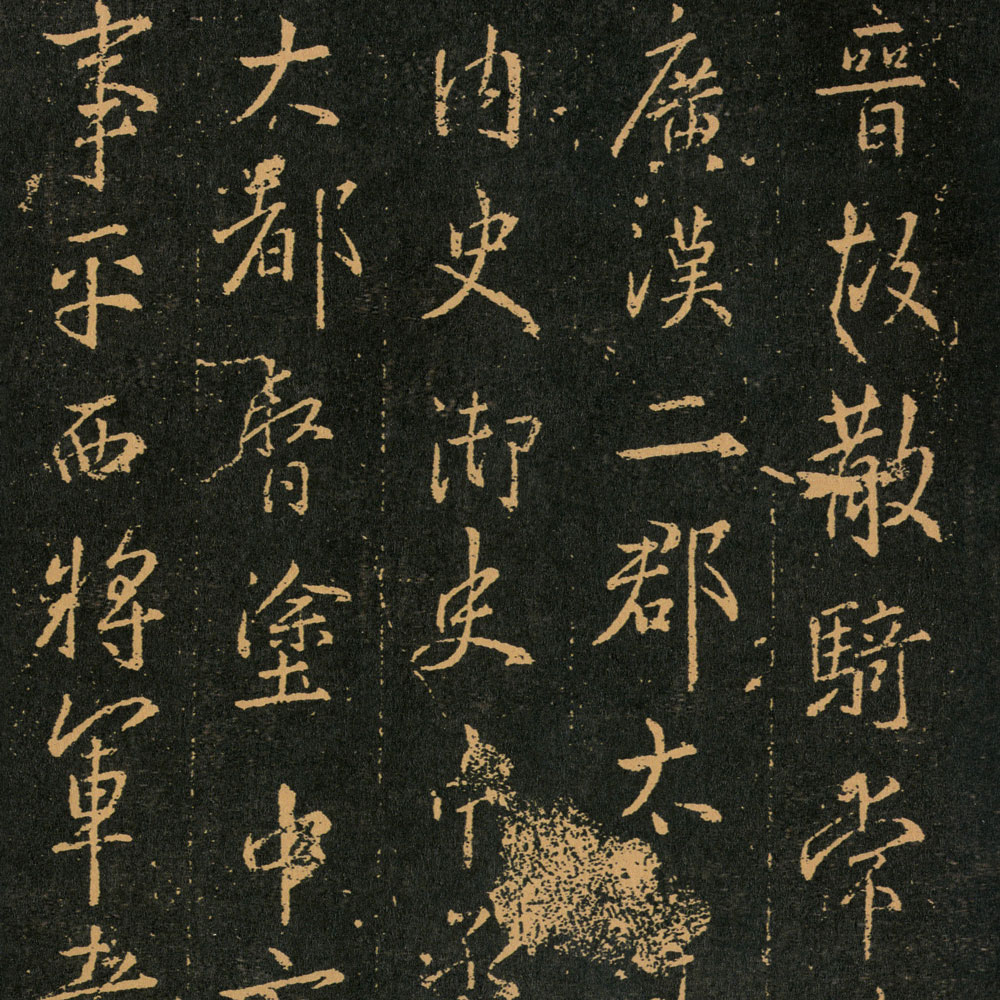 晉故散騎常
廣漢二郡太
内史御史中丞
大都督塗中
事平西將軍孝